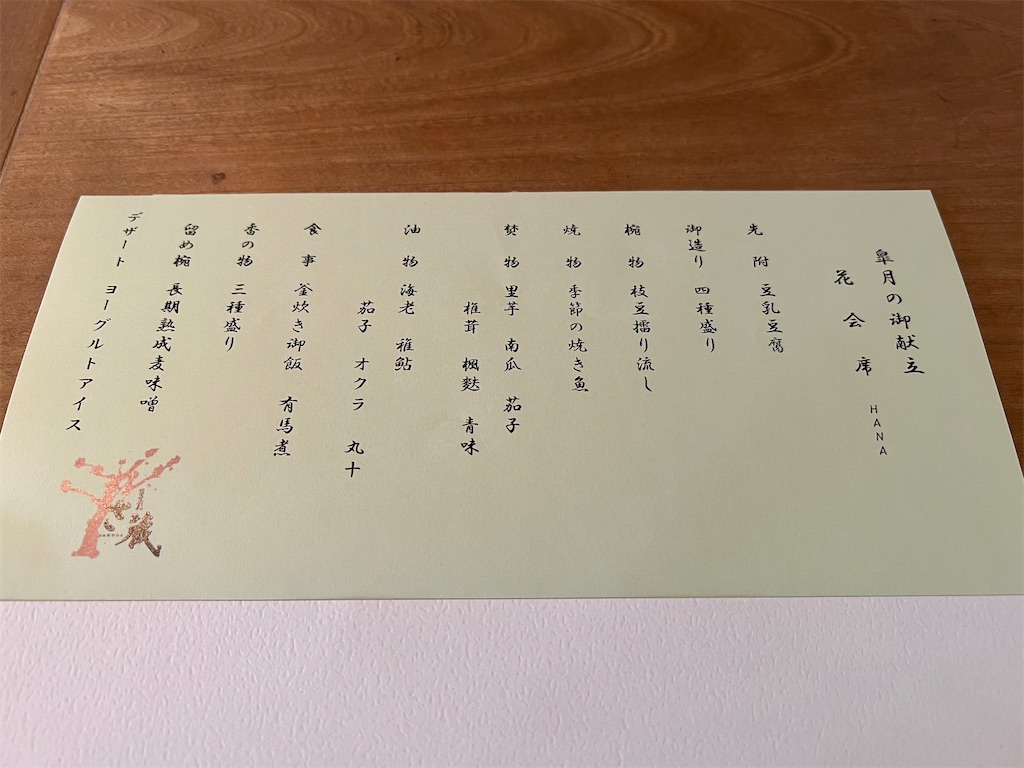 皐月の御献立
花会席 HANA
先附 豆乳豆腐
御造り 四種盛り
椀物 枝豆擂り流し
焼物 季節の焼き魚
焚物 里芋 南瓜 茄子
椎茸 楓麩 青味
油物 海老 稚鮎
茄子 オクラ 丸十
食事 釜炊き御飯 有馬煮
香の物 三種盛り
留め椀 長期熟成麦味噌
デザート ヨーグルトアイス
蔵